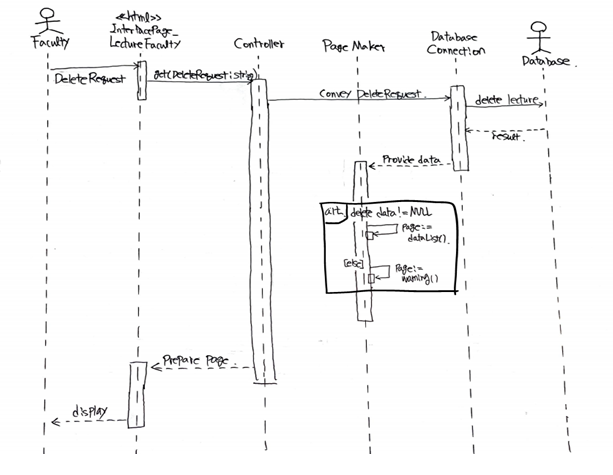 Faculty
<<html>>
InterfacePage_
LectureFaculty
Controller
Page Maker
Database
Connection
Database
DeleteRequest
get(DeleteRequest:string)
Convey DeleteRequest.
delete lecture
result.
Provide data
art.
delete data!=NULL
Page:=
dataList().
[else]
Page:=
warning()
Prepare Page.
display